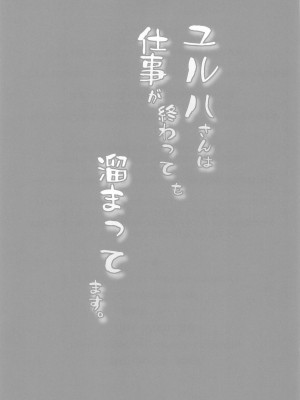 ユルハさんは
仕事が
終わっても
溜まって
ます。